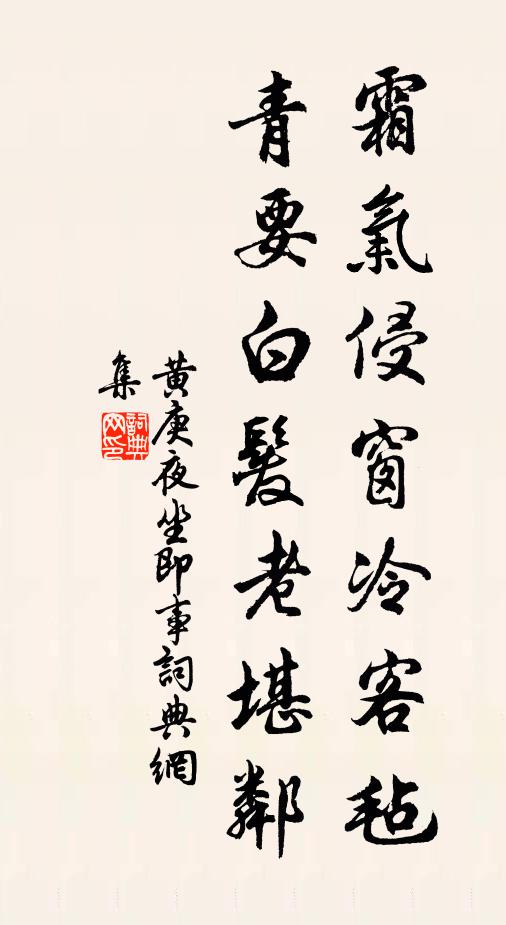 霜氣侵窗冷客毡
青要白髮老堪鄰
黃庚夜坐即事詞典網
集
詞典網印